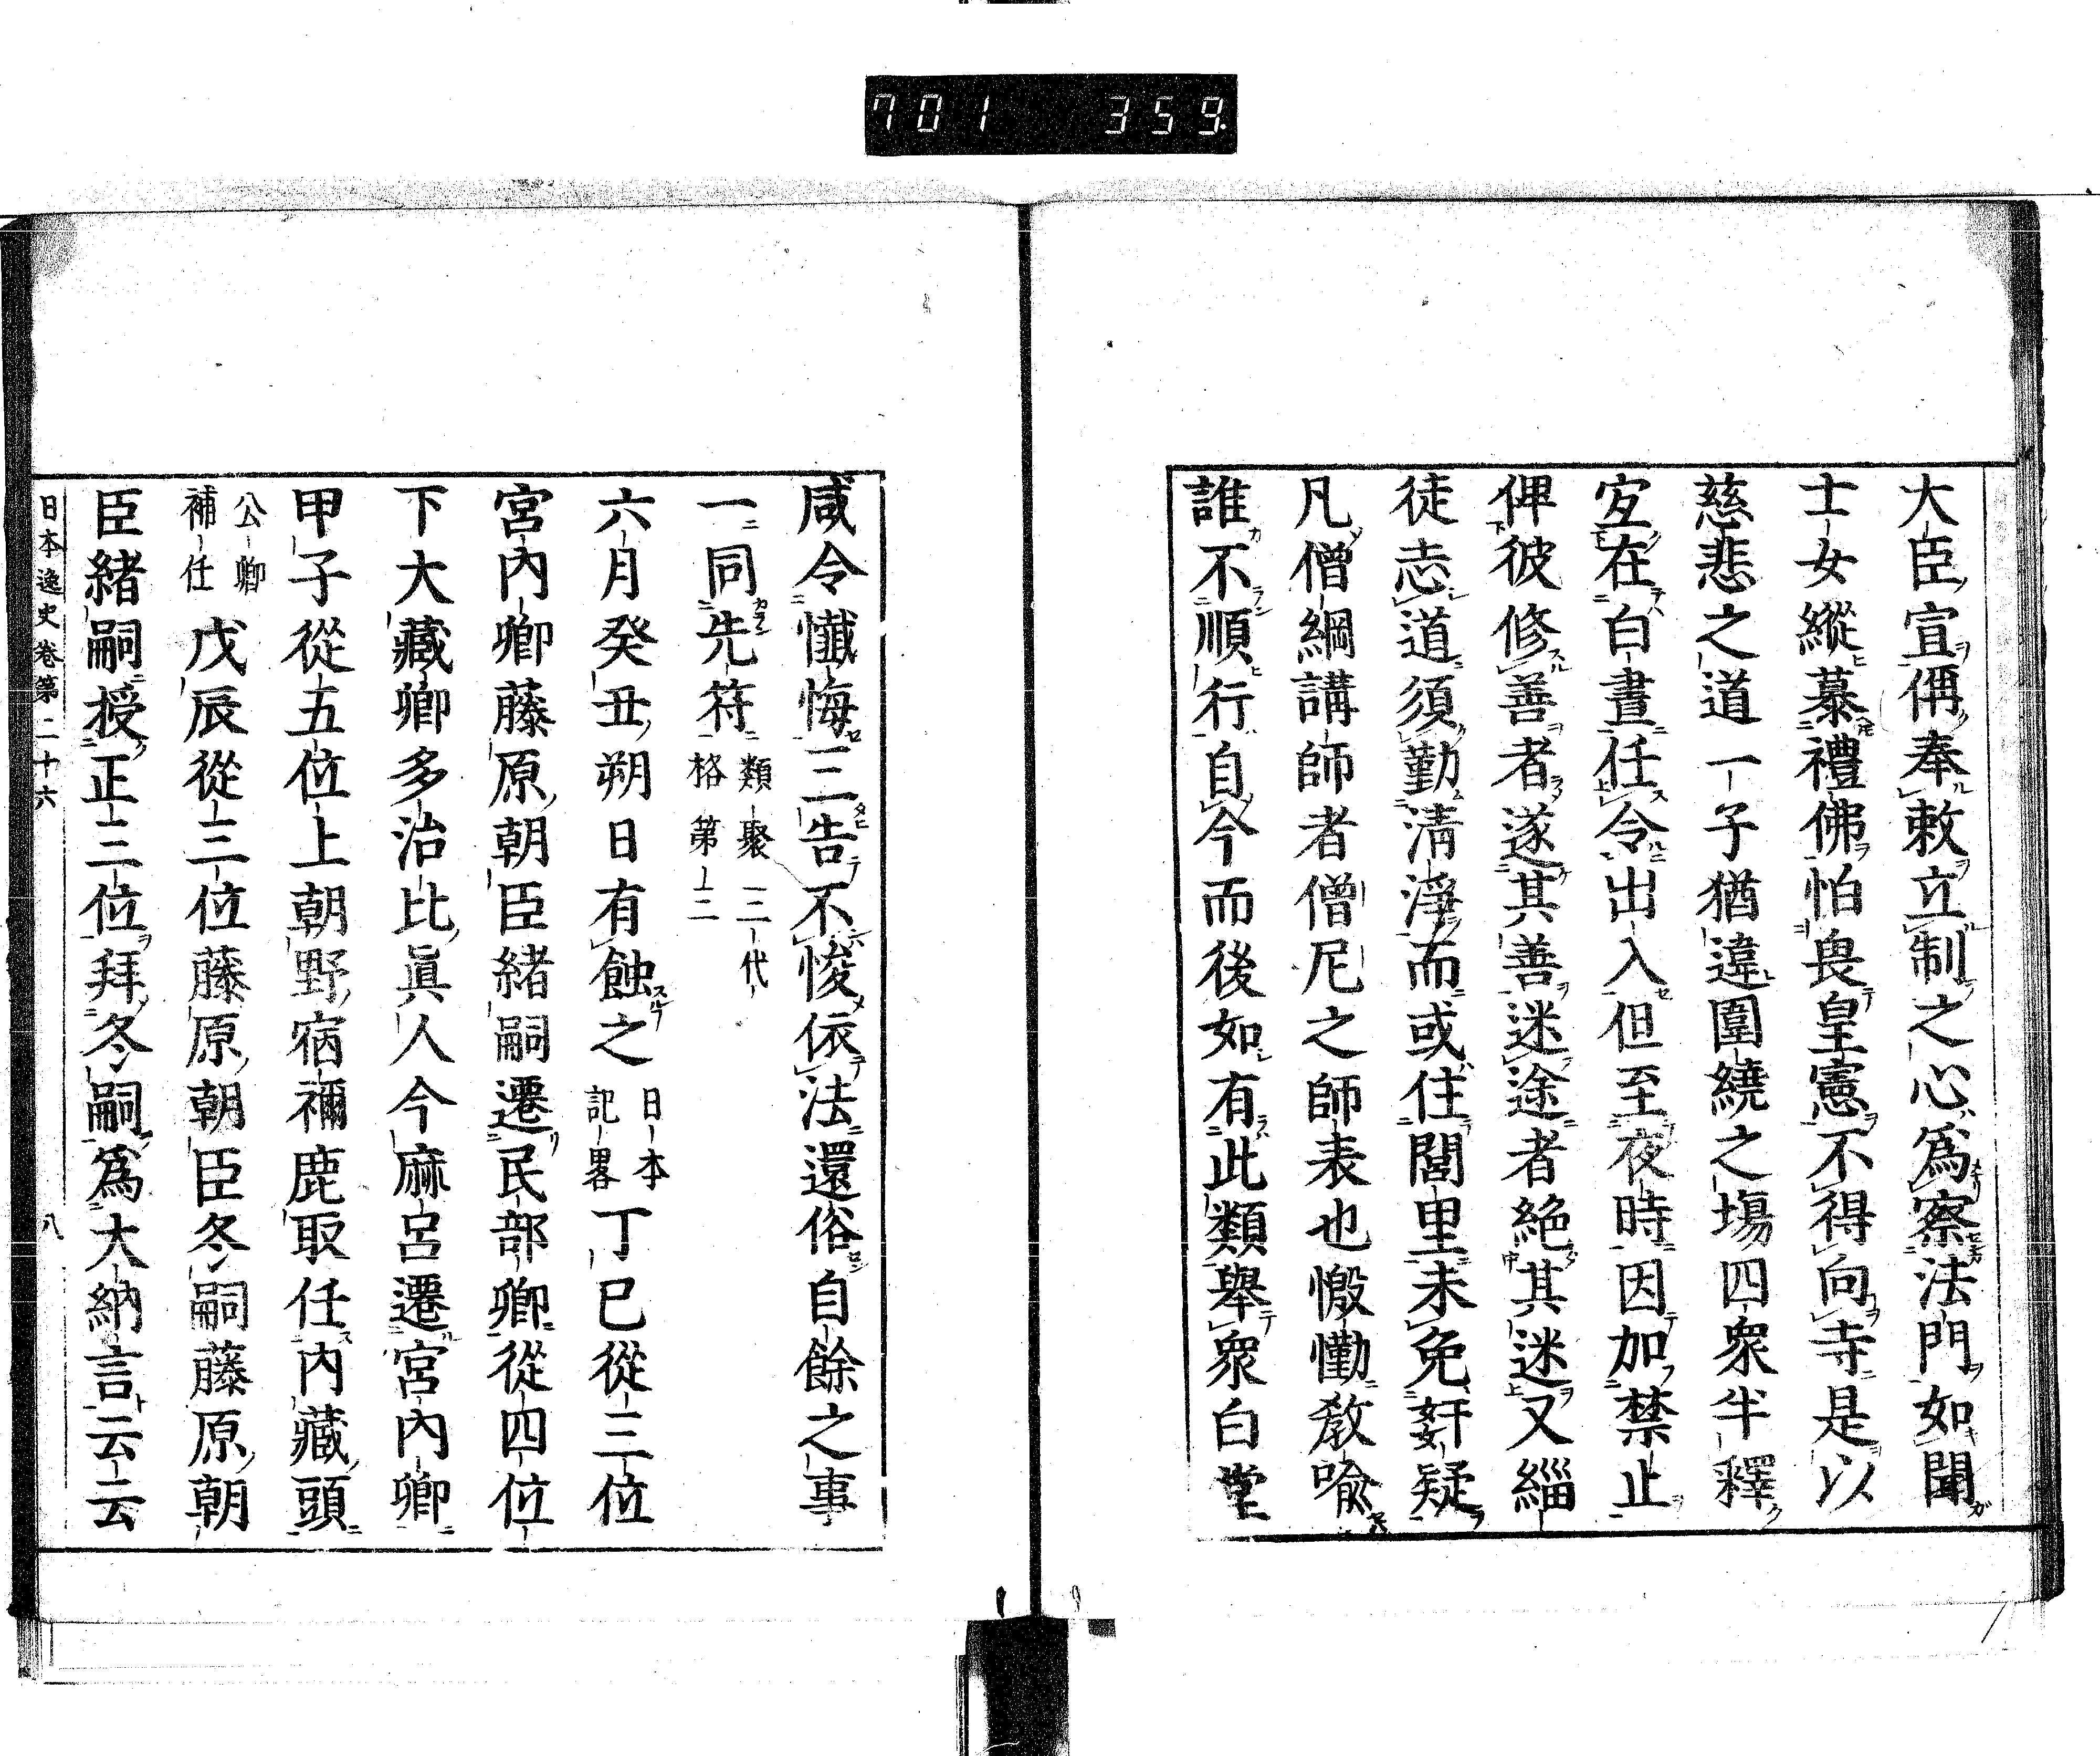 701 359.
大臣宣偁奉敕立制之心爲察法門如聞
士女縱慕禮佛怕畏皇憲不得向寺是以
慈悲之道一子猶違圍繞之場四衆半釋
宜在白晝任令出入但至夜時因加禁止
俾彼修善者遂其善迷途者絶其迷又緇
徒志道須勤淸淨而或住閭里未免奸疑
凡僧綱講師者僧尼之師表也慇懃教喩
誰不順行自今而後如有此類擧衆白堂
咸令懺悔三告不悛依法還俗自餘之事
一同先符類聚三代格第十二
六月癸丑朔日有蝕之日本記畧丁巳從三位
宮內卿藤原朝臣緖嗣遷民部卿從四位
下大藏卿多治比眞人今麻呂遷宮內卿
甲子從五位上朝野宿禰鹿取任內藏頭
公卿補任戊辰從三位藤原朝臣冬嗣藤原朝
臣緖嗣授正三位拜冬嗣爲大納言云云
日本逸史卷第二十六 八